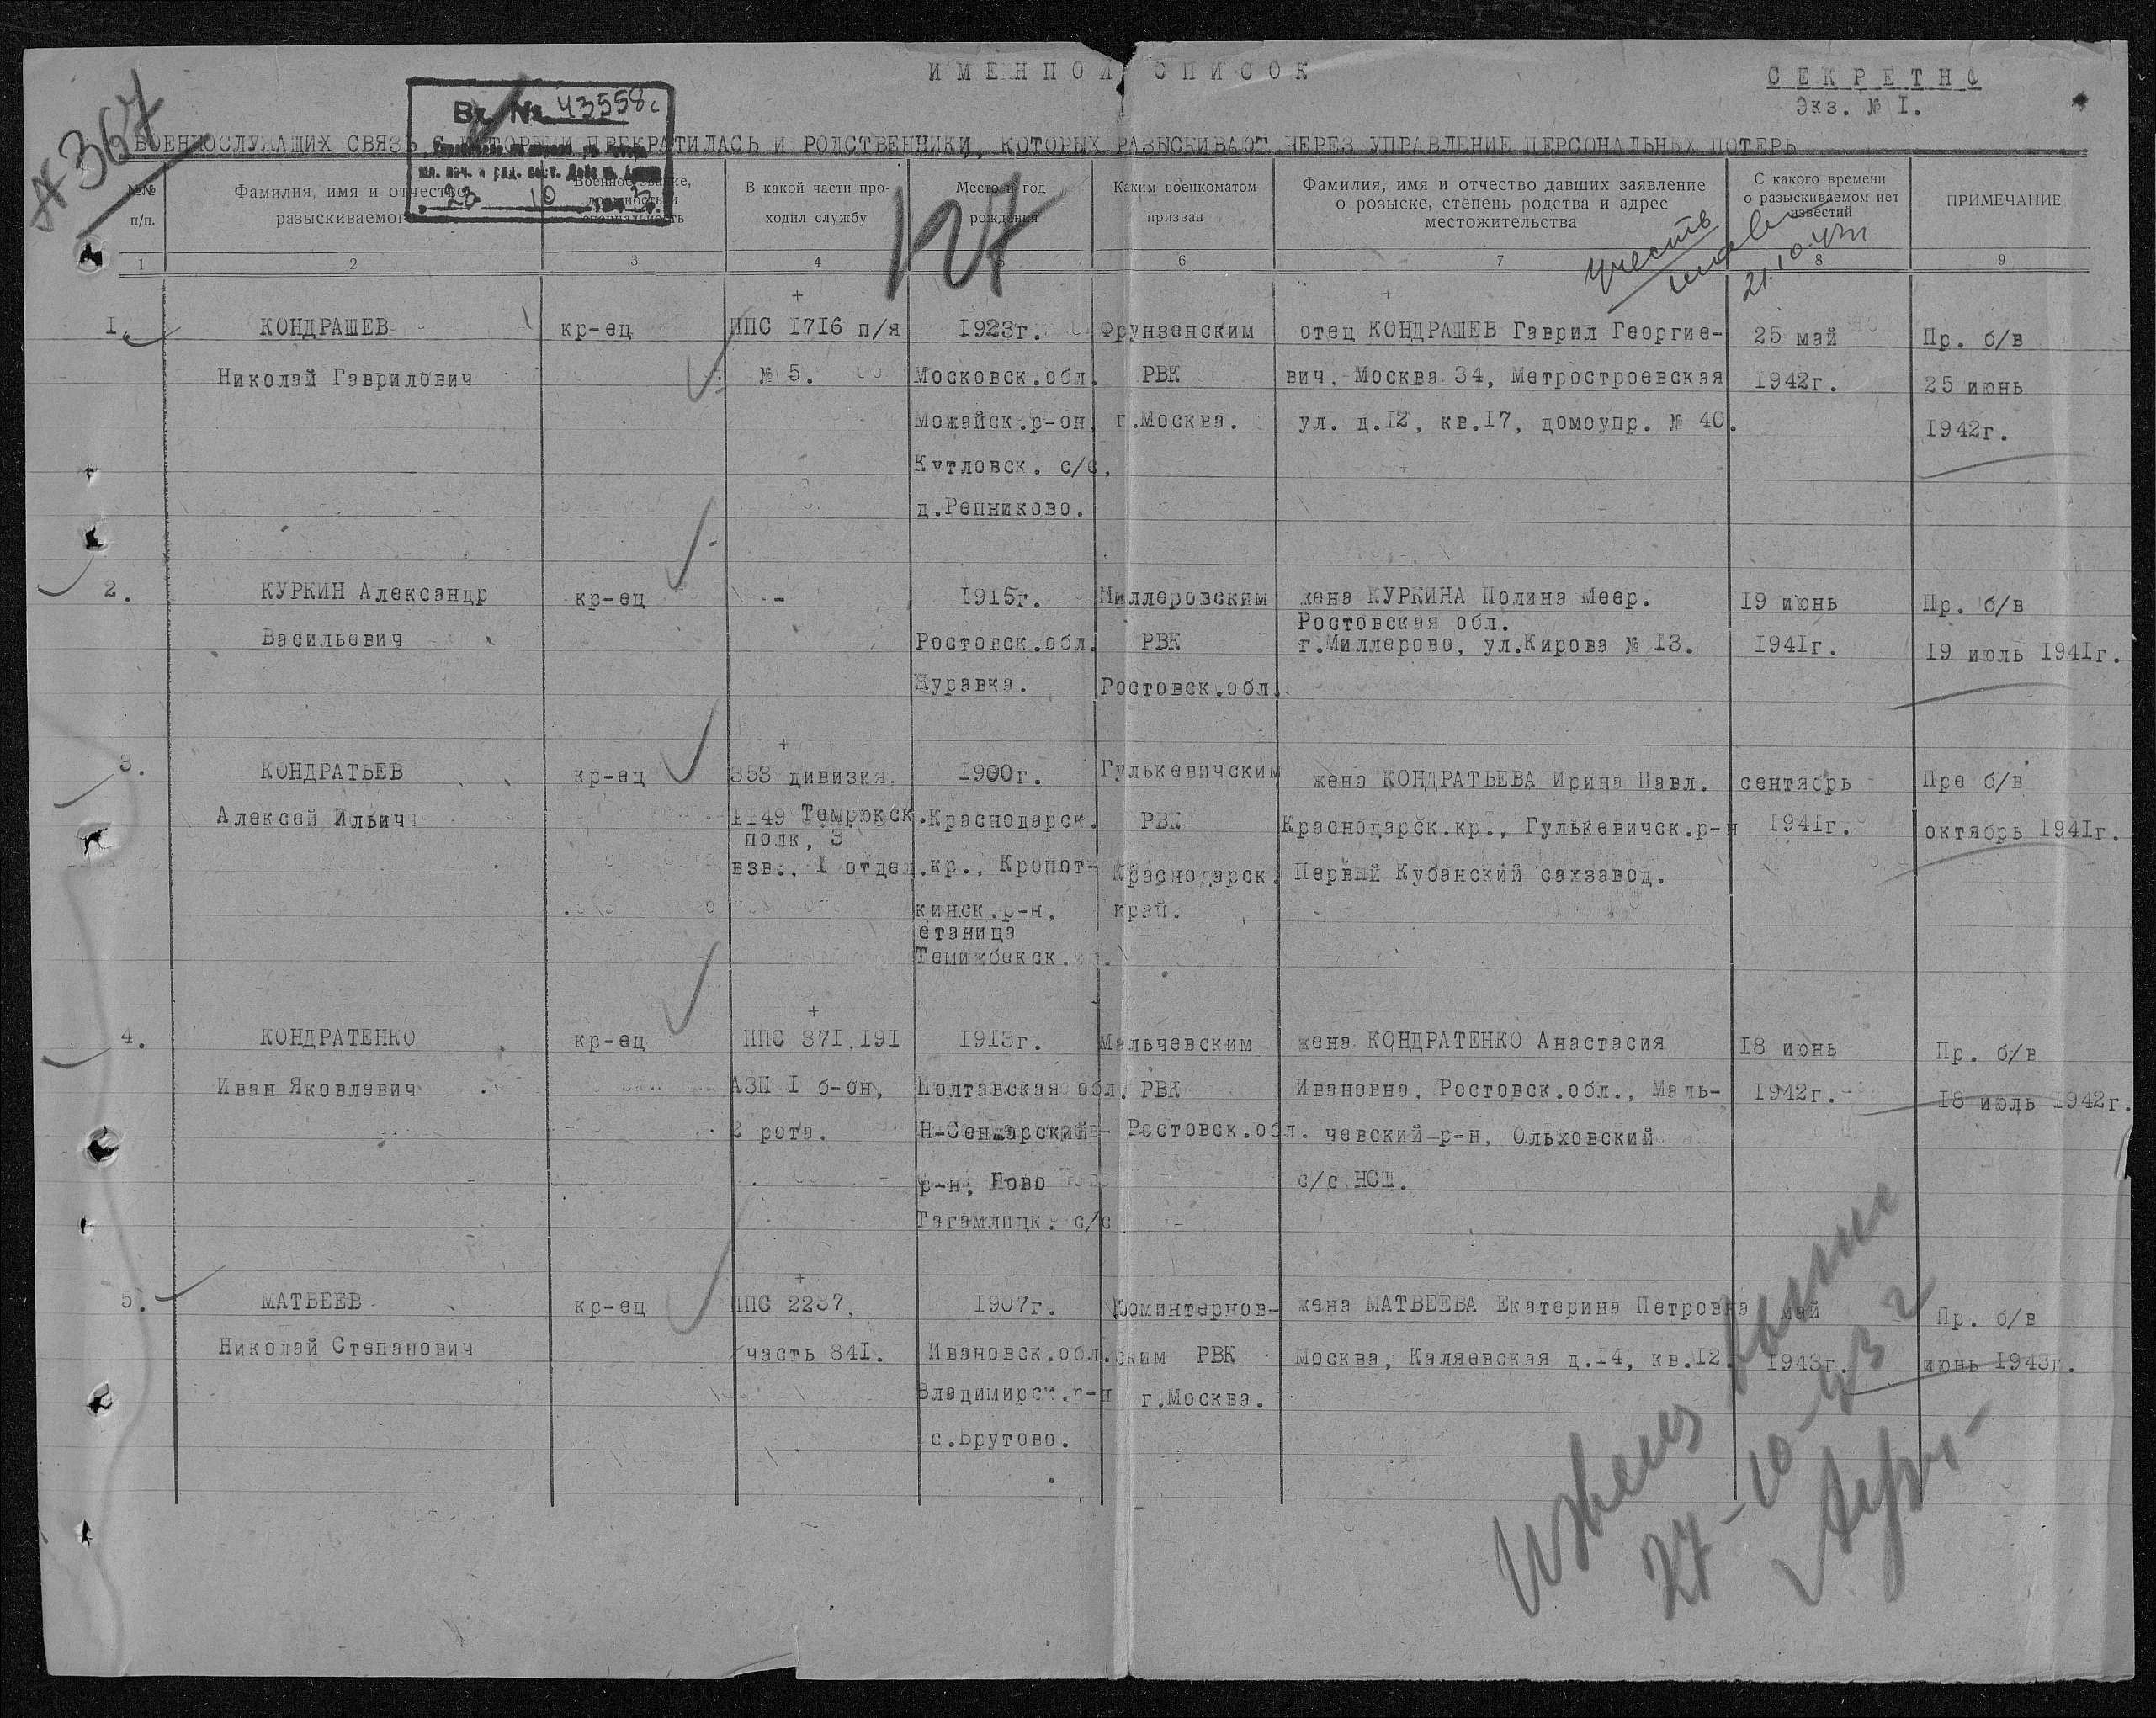 ИМЕННОЙ СПИСОК
СЕКРЕТНО
Экз. № I.
№ 367
Вх. № 43558с
23 10 1943г.
ВОЕННОСЛУЖАЩИХ СВЯЗЬ С КОТОРЫМИ ПРЕКРАТИЛАСЬ И РОДСТВЕННИКИ, КОТОРЫХ РАЗЫСКИВАЮТ ЧЕРЕЗ УПРАВЛЕНИЕ ПЕРСОНАЛЬНЫХ ПОТЕРЬ
127
№№ п/п.
Фамилия, имя и отчество разыскиваемого
Военное звание, должность и специальность
В какой части проходил службу
Место и год рождения
Каким военкоматом призван
Фамилия, имя и отчество давших заявление о розыске, степень родства и адрес местожительства
С какого времени о разыскиваемом нет известий
ПРИМЕЧАНИЕ
учесть
21.10.43г
1 2 3 4 5 6 7 8 9
I. КОНДРАШЕВ кр-ец ППС I7I6 п/я 1923г. Фрунзенским отец КОНДРАШЕВ Гаврил Георгие- 25 май Пр. б/в
Николай Гаврилович № 5. Московск.обл. РВК вич, Москва 34, Метростроевская 1942г. 25 июнь
Можайск.р-он, г.Москва. ул. д.I2, кв.I7, домоупр. № 40. 1942г.
Кутловск. с/с,
д.Репниково.
2. КУРКИН Александр кр-ец - 1915г. Миллеровским жена КУРКИНА Полина Меер. I9 июнь Пр. б/в
Ростовская обл.
Васильевич Ростовск.обл. РВК г.Миллерово, ул.Кирова № I3. 1941г. 19 июль 194Iг.
Журавка. Ростовск.обл.
3. КОНДРАТЬЕВ кр-ец 353 дивизия, 1900г. Гулькевичским жена КОНДРАТЬЕВА Ирина Павл. сентябрь Пре б/в
Алексей Ильич II49 Темрюкск. Краснодарск. РВК Краснодарск.кр., Гулькевичск.р-н 194Iг. октябрь 194Iг.
полк, 3
взв., I отдел. кр., Кропот- Краснодарск. Первый Кубанский сахзавод.
кинск.р-н, край.
станица
Темижбекск.
4. КОНДРАТЕНКО кр-ец ППС 371,191 1913г. Мальчевским жена КОНДРАТЕНКО Анастасия I8 июнь Пр. б/в
Иван Яковлевич АЗП I б-он, Полтавская обл. РВК Ивановна, Ростовск.обл., Маль- 1942г. I8 июль 1942г.
2 рота. Н-Сенжарский Ростовск.обл. чевский р-н, Ольховский
р-н, Ново с/с НСШ.
Тагамлицк. с/с
5. МАТВЕЕВ кр-ец ППС 2237, 1907г. Коминтернов- жена МАТВЕЕВА Екатерина Петровна май Пр. б/в
Николай Степанович часть 841. Ивановск.обл. ским РВК Москва, Каляевская д.I4, кв.I2 1943г. июнь 1943г.
Владимирск.р-н г.Москва.
с.Брутово.
27-10-43 г